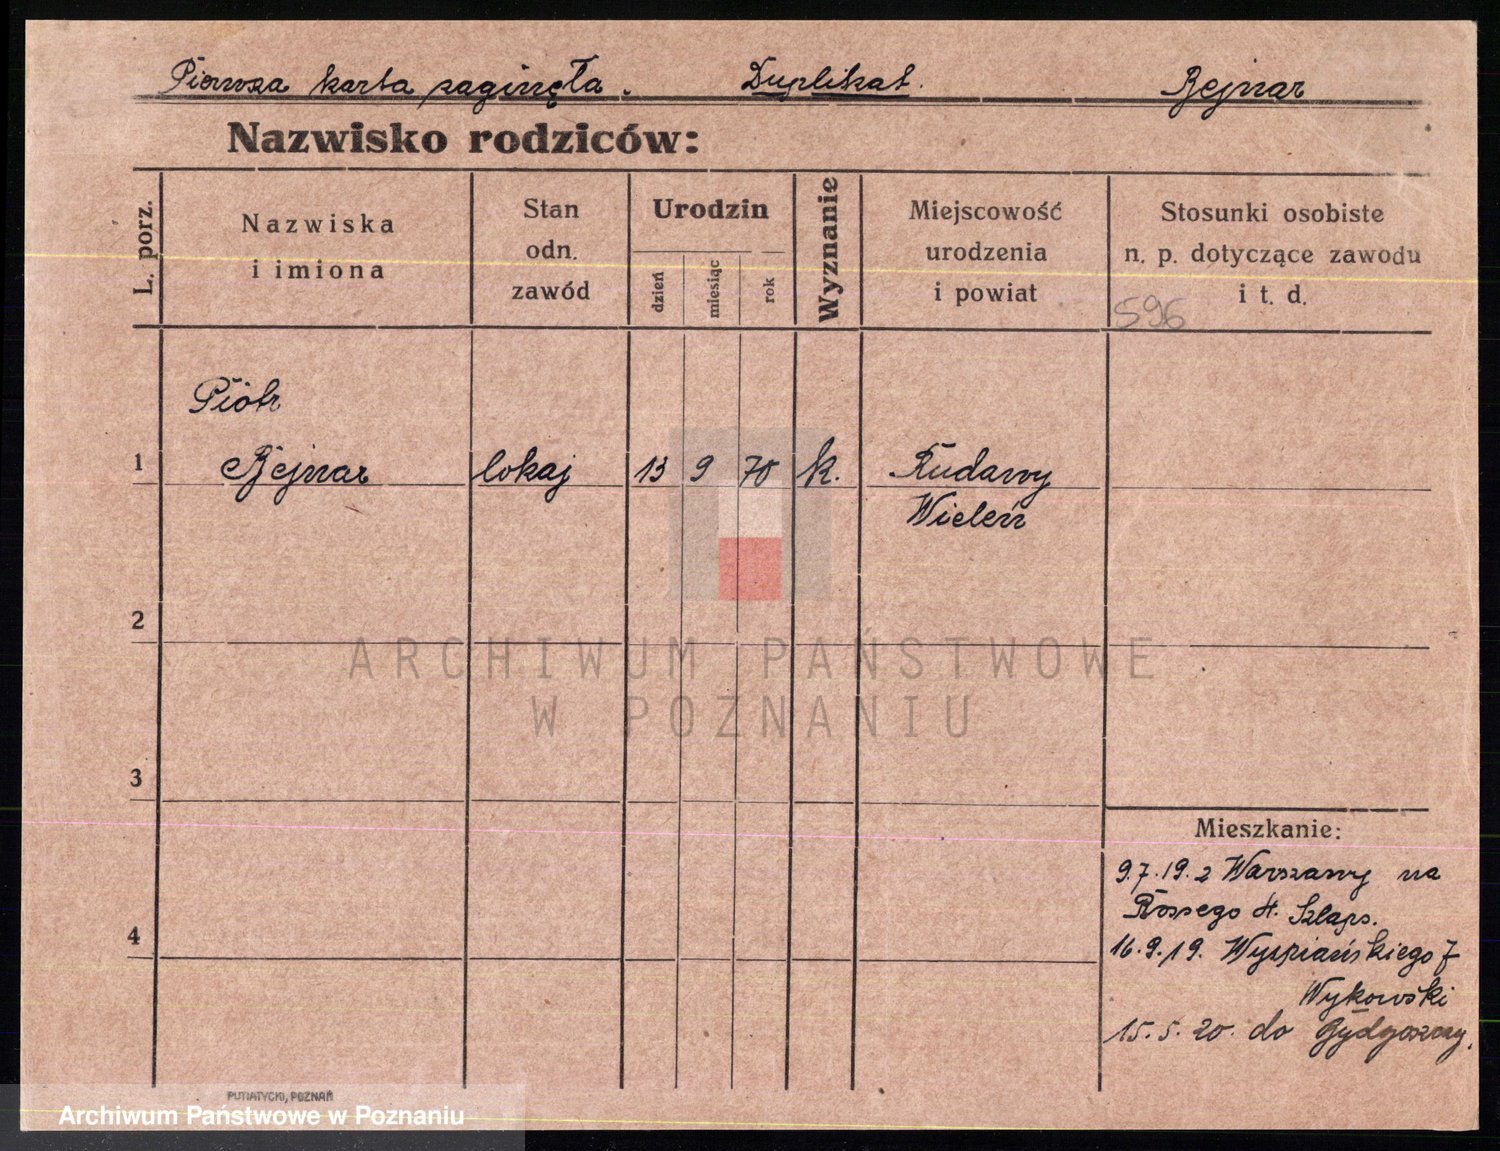 Pierwsza karta zaginęła. Duplikat. Bejnar
Nazwisko rodziców:
L. porz.
Nazwiska
i imiona
Stan
odn.
zawód
Urodzin
dzień
miesiąc
rok
Wyznanie
Miejscowość
urodzenia
i powiat
Stosunki osobiste
n. p. dotyczące zawodu
i t. d.
596
Piotr
1 Bejnar lokaj 13 9 70 k. Rudawy
Wieleń
2
3
4
ARCHIWUM PAŃSTWOWE
W POZNANIU
Mieszkanie:
9.7.19. z Warszawy na
4. Szlaps.
16.9.19. Wyspiańskiego 7
Wykowski
15.5.20. do Bydgoszczy.
PUTIATYCKI, POZNAŃ
Archiwum Państwowe w Poznaniu